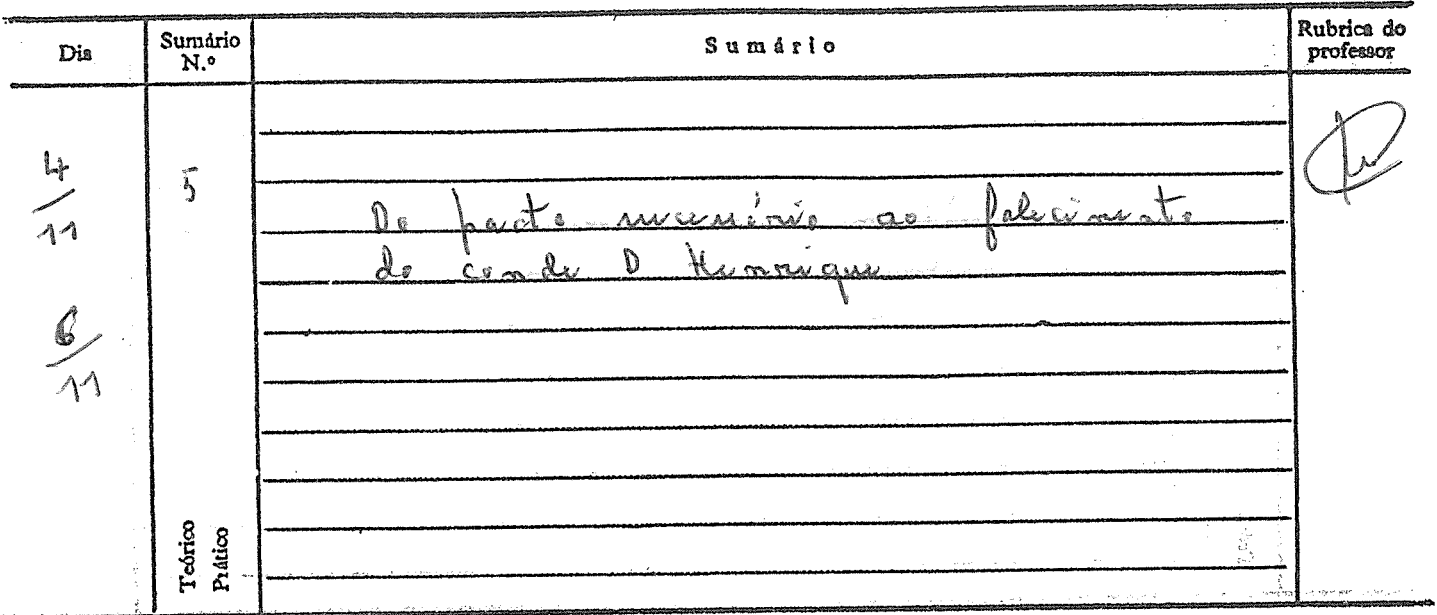 Dia
Sumário N.º
Sumário
Rubrica do professor
4/11
5
Do pacto sucessório ao falecimento
do conde D Henrique
6/11
Teórico
Prático